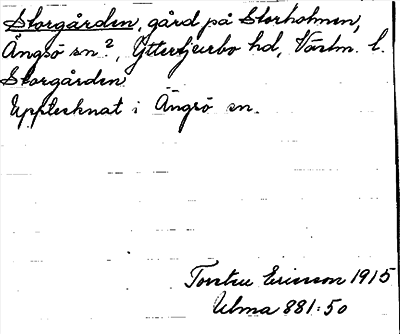 Storgården, gård på Storholmen,
Ängsö sn?, Yttertjurbo hd, Västm. l.
Storgården
Upptecknat i Ängsö sn.
Torsten Ericsson 1915
Ulma 881:50